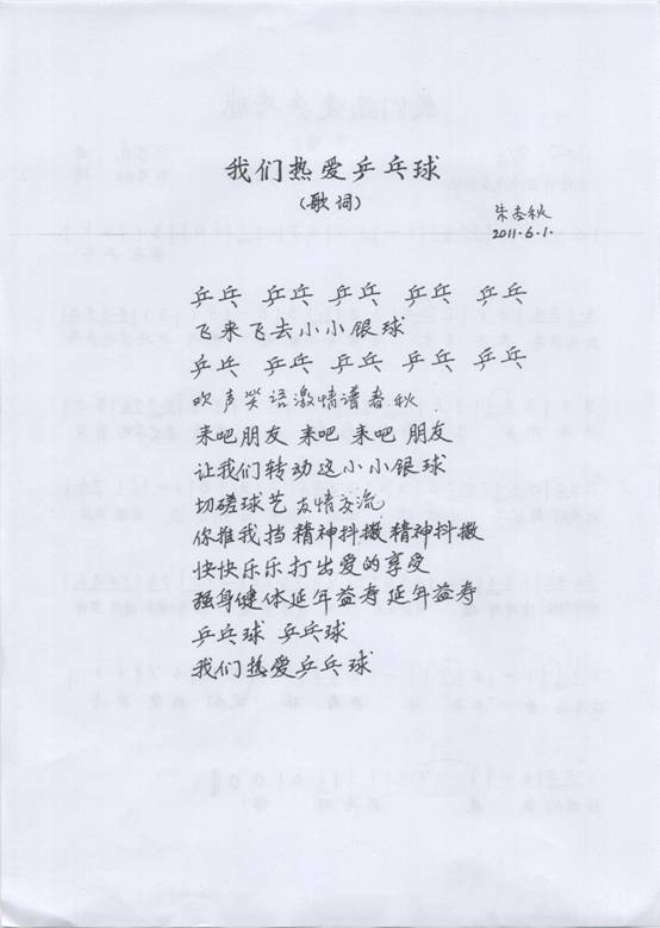 我们热爱乒乓球
(歌词)
朱杏秋
2011.6.1.
乒乓 乒乓 乒乓 乒乓 乒乓
飞来飞去小小银球
乒乓 乒乓 乒乓 乒乓 乒乓
欢声笑语激情谱春秋
来吧朋友 来吧 来吧 朋友
让我们转动这小小银球
切磋球艺 友情交流
你推我挡 精神抖擞 精神抖擞
快快乐乐打出爱的享受
强身健体延年益寿 延年益寿
乒乓球 乒乓球
我们热爱乒乓球